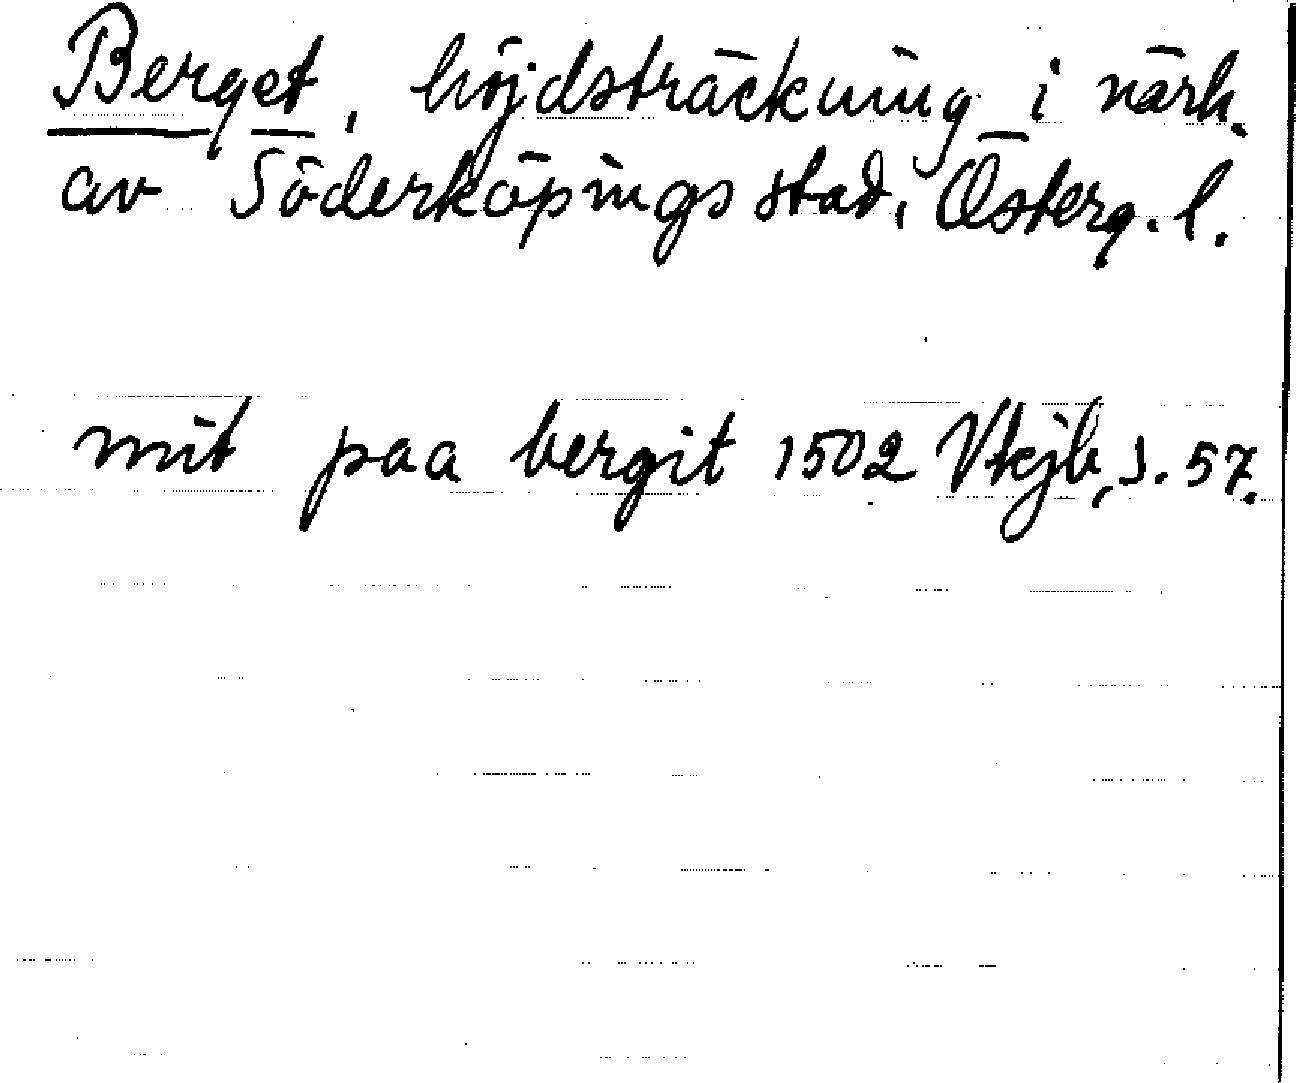 Berget, höjdsträckning i närh.
av Söderköpings stad, Österg. l.
mit paa bergit 1502 Vtkjb, s. 57.